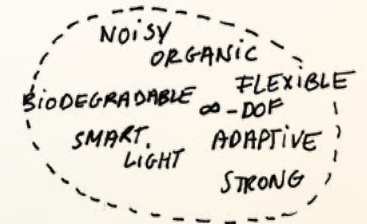 NOISY
ORGANIC
FLEXIBLE
BIODEGRADABLE
∞-DOF
SMART.
ADAPTIVE
LIGHT
STRONG